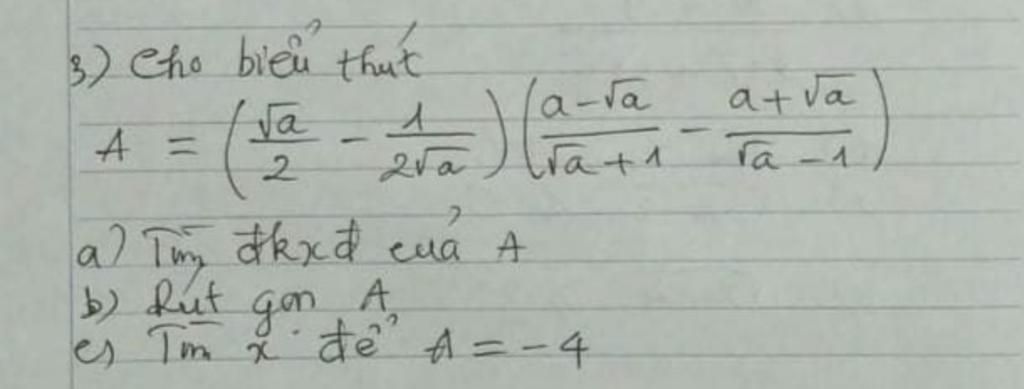 3) Cho biểu thức
A = (√a/2 - 1/2√a)(a-√a/√a+1 - a+√a/√a-1)
a) Tìm đkxđ của A
b) Rút gọn A
c) Tìm x để A = -4